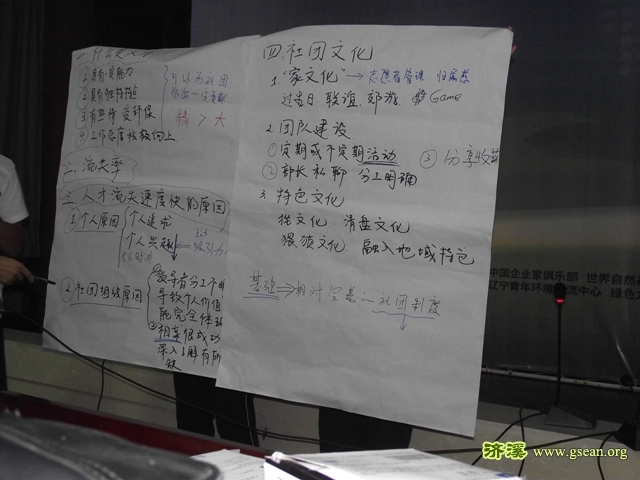 ①具有一定能力
②具有独特特点
③有热情 爱环保
④工作态度积极向上
可以为社团
精 > 大
二. 流失率
三. 人才流失速度快的原因
①个人原因
个人追求
个人兴趣
②社团组织原因
导致个人价值
能完全体
深入了解有所
四. 社团文化
1. "家文化" → 志愿者管理 归属感
过生日. 联谊. 郊游. Game
2. 团队建设
①定期或不定期活动
②部长私聊 分工明确
③分享收获
3. 特色文化
姓文化 清盘文化
融入地域特色
基础 ⇒ 相对完善的社团制度
中国企业家俱乐部 世界自然
辽宁青年环境交流中心 绿色
济溪 www.gsean.org